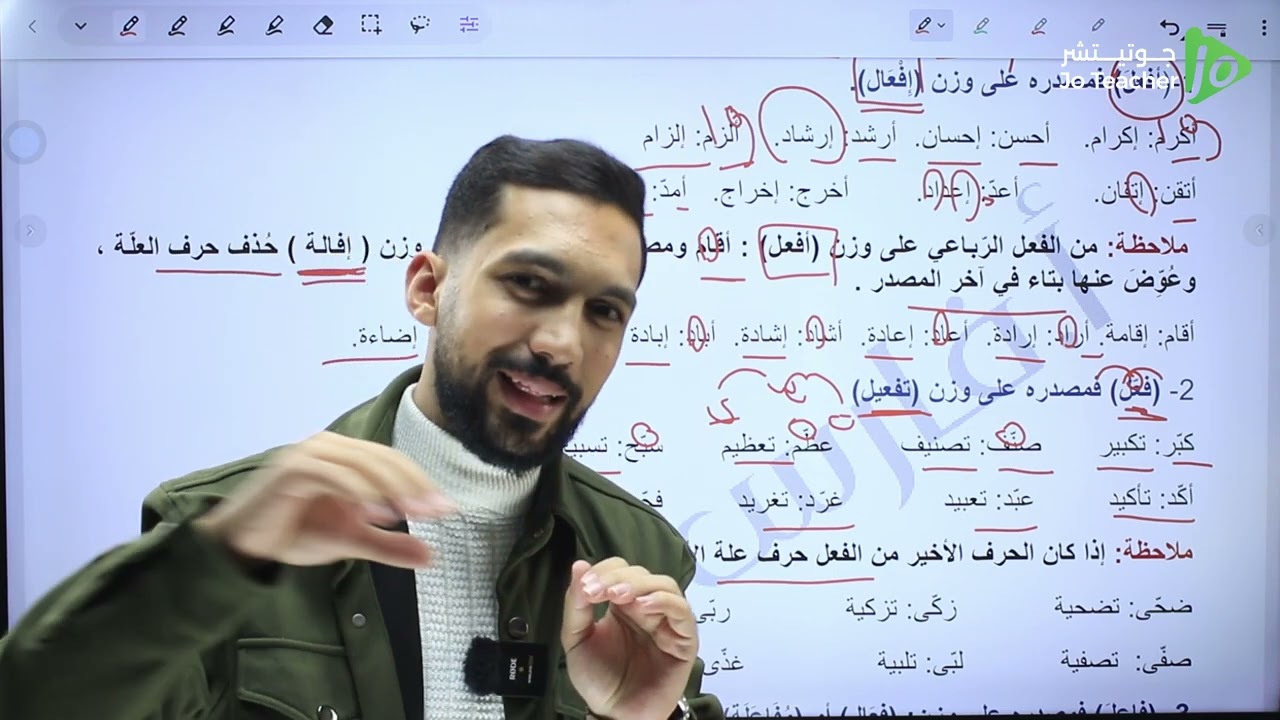 جـوتيـتشر
Jo Teacher
Jo
(أفعل) فمصدره على وزن (إِفْعَال).
أكرم: إكرام. أحسن: إحسان. أرشد: إرشاد. ألزم: إلزام
أتقن: إتقان. أعدّ: إعداد. أخرج: إخراج. أمدّ:
ملاحظة: من الفعل الرّباعي على وزن (أفعل) : أقام ومص وزن ( إفالة ) حُذف حرف العلّة ،
وعُوِّضَ عنها بتاء في آخر المصدر .
أقام: إقامة. أراد: إرادة. أعاد: إعادة. أشاد: إشادة. أباد: إبادة إضاءة.
2- (فعّل) فمصدره على وزن (تفعيل)
كبّر: تكبير صنّف: تصنيف عظّم: تعظيم سبّح: تسبي
أكّد: تأكيد عبّد: تعبيد غرّد: تغريد
ملاحظة: إذا كان الحرف الأخير من الفعل حرف علة
ضحّى: تضحية زكّى: تزكية ربّى
صفّى: تصفية لبّى: تلبية غذّى
3- (فاعل) فمصدره على وزن: (فِعَال) أو (مُفَاعَلَة)
أ.فارس
RODE